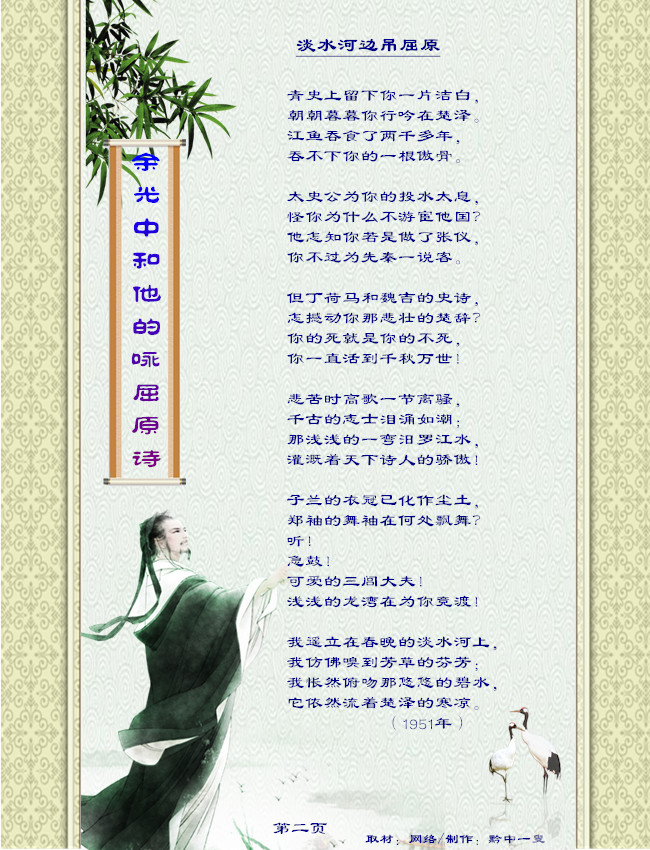 淡水河边吊屈原
青史上留下你一片洁白，
朝朝暮暮你行吟在楚泽。
江鱼吞食了两千多年，
吞不下你的一根傲骨。
太史公为你的投水太息，
怪你为什么不游宦他国？
他怎知你若是做了张仪，
你不过为先秦一说客。
但丁荷马和魏吉的史诗，
怎撼动你那悲壮的楚辞？
你的死就是你的不死，
你一直活到千秋万世！
悲苦时高歌一节离骚，
千古的志士泪涌如潮；
那浅浅的一弯汨罗江水，
灌溉着天下诗人的骄傲！
子兰的衣冠已化作尘土，
郑袖的舞袖在何处飘舞？
听！
急鼓！
可爱的三闾大夫！
浅浅的龙湾在为你竞渡！
我遥立在春晚的淡水河上，
我仿佛嗅到芳草的芬芳；
我怅然俯吻那悠悠的碧水，
它依然流着楚泽的寒凉。
（1951年）
余光中和他的咏屈原诗
第二页
取材：网络/制作：黔中一叟